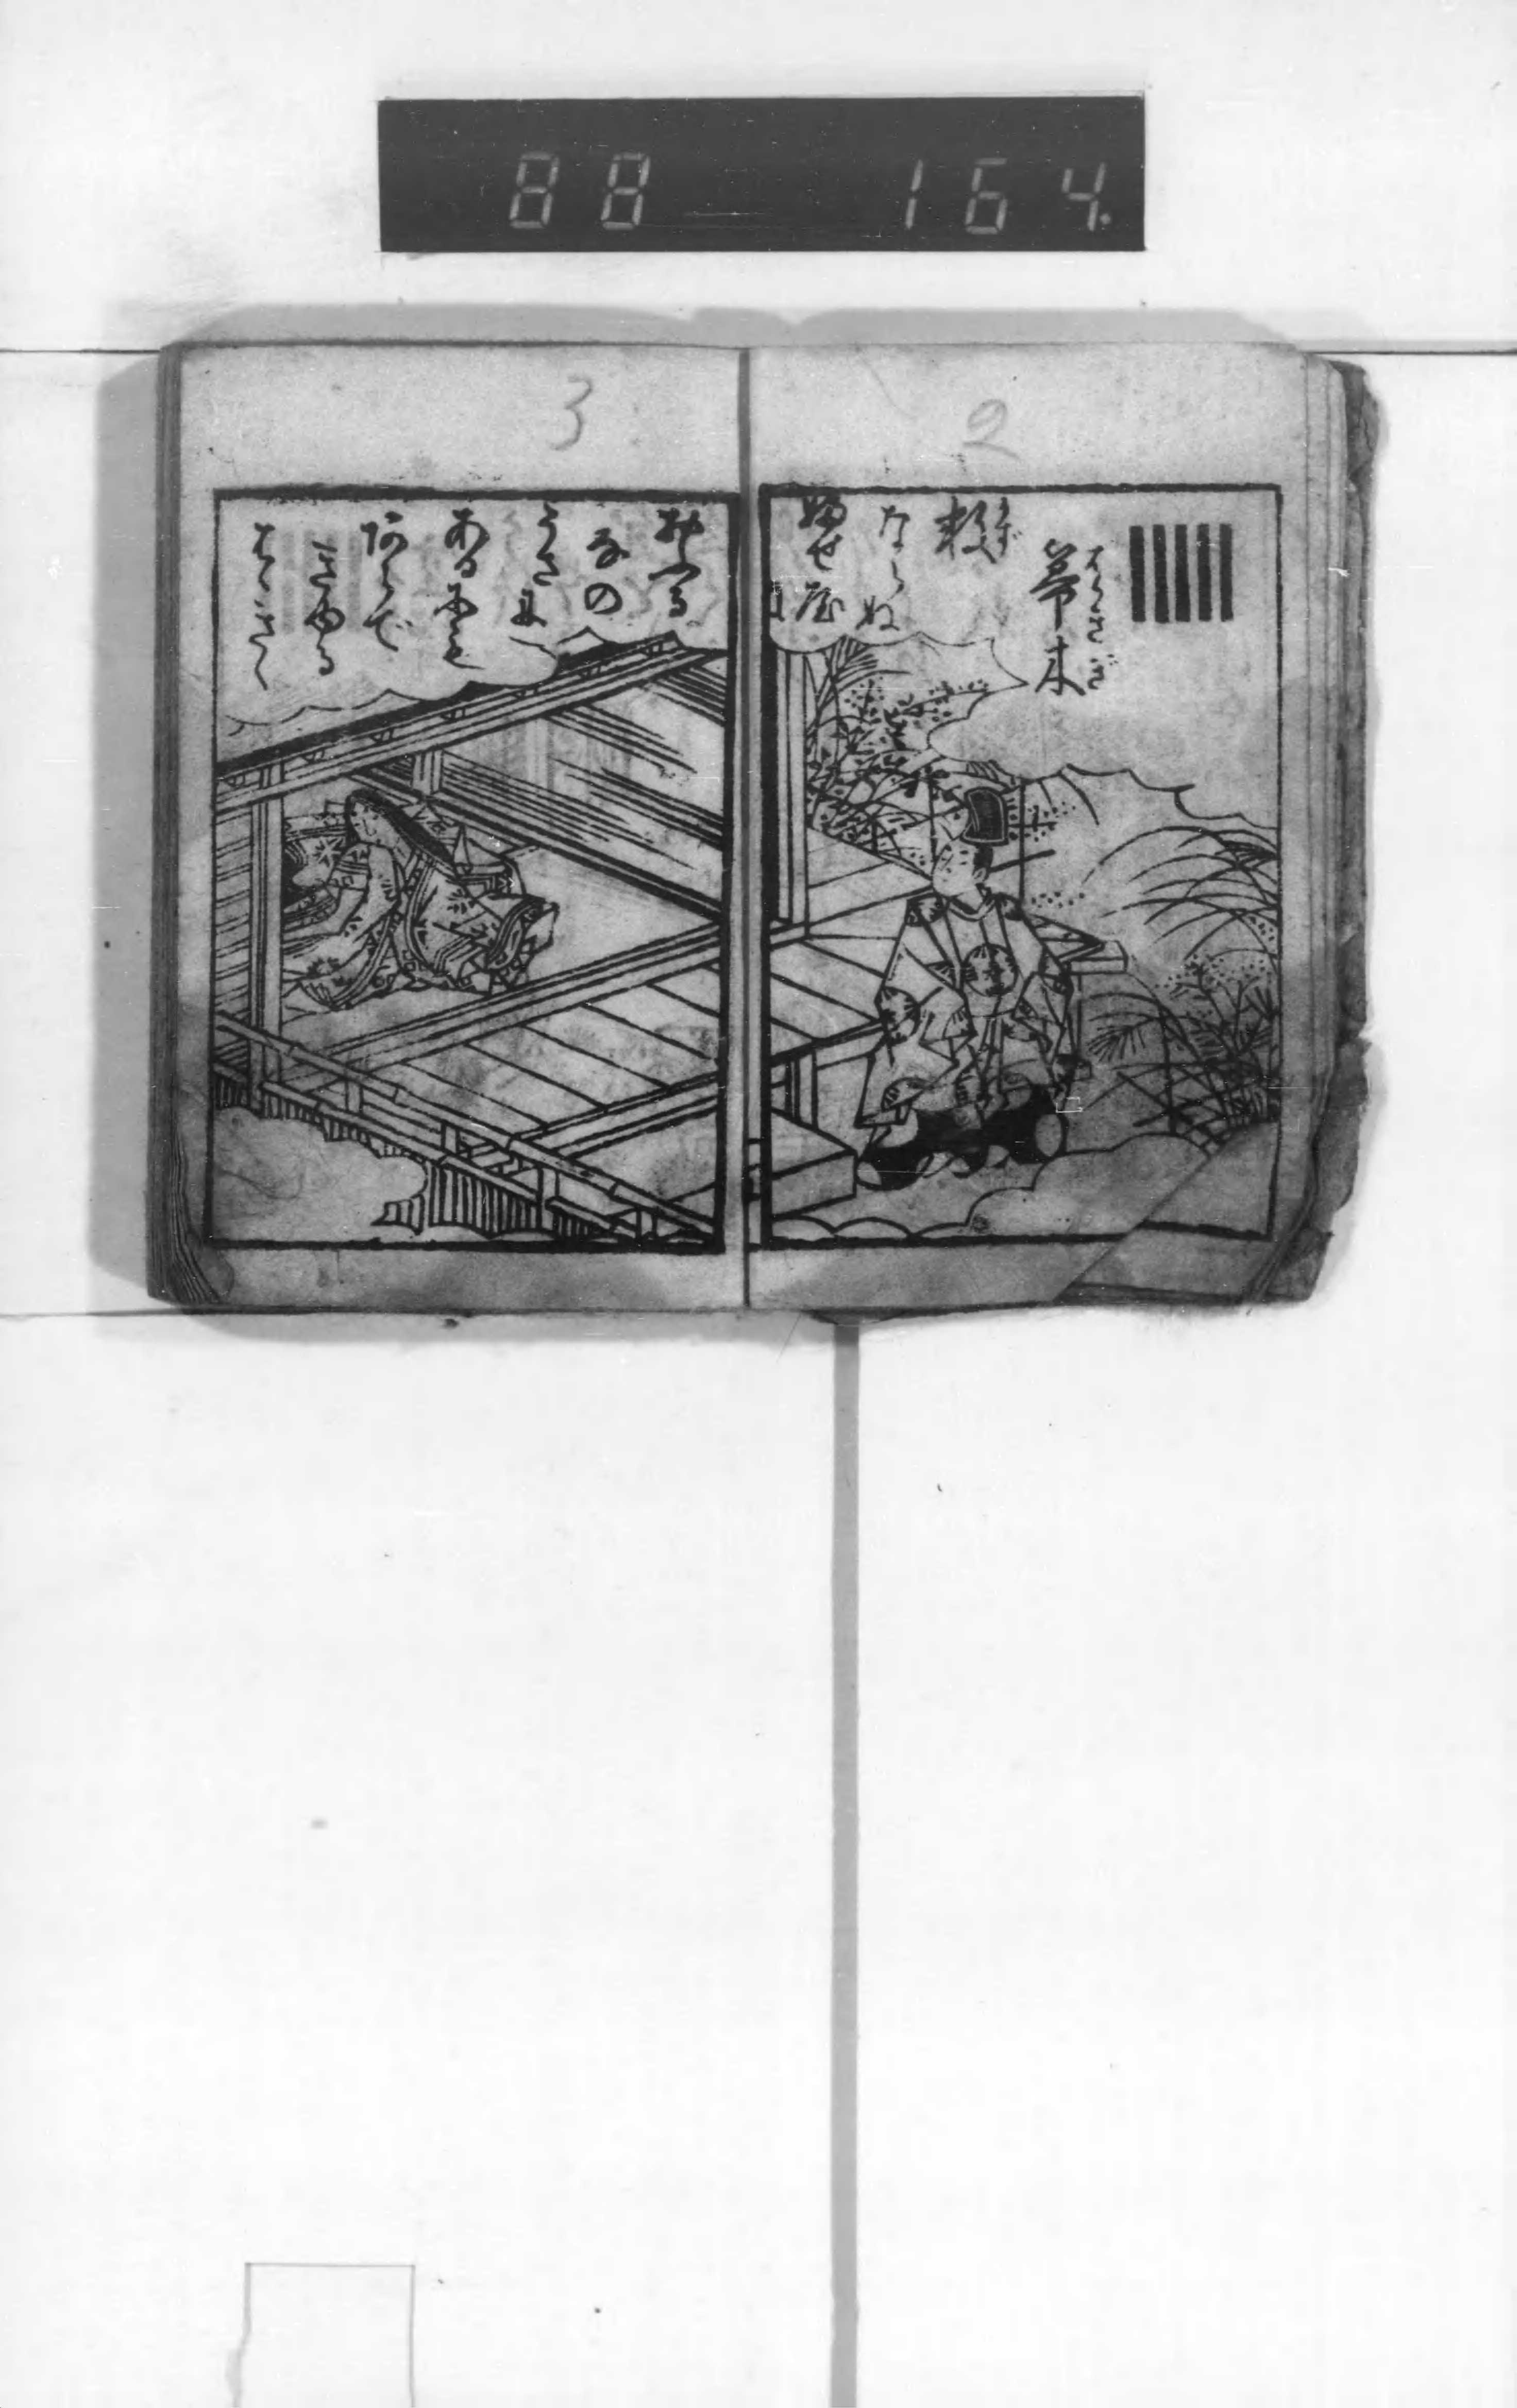 88 164
2
はゝきぎ
箒木
かず
数
ならぬ
ふせ屋
に
3
おふる
なの
うさに
あるにも
あらで
きゆる
はゝきゞ